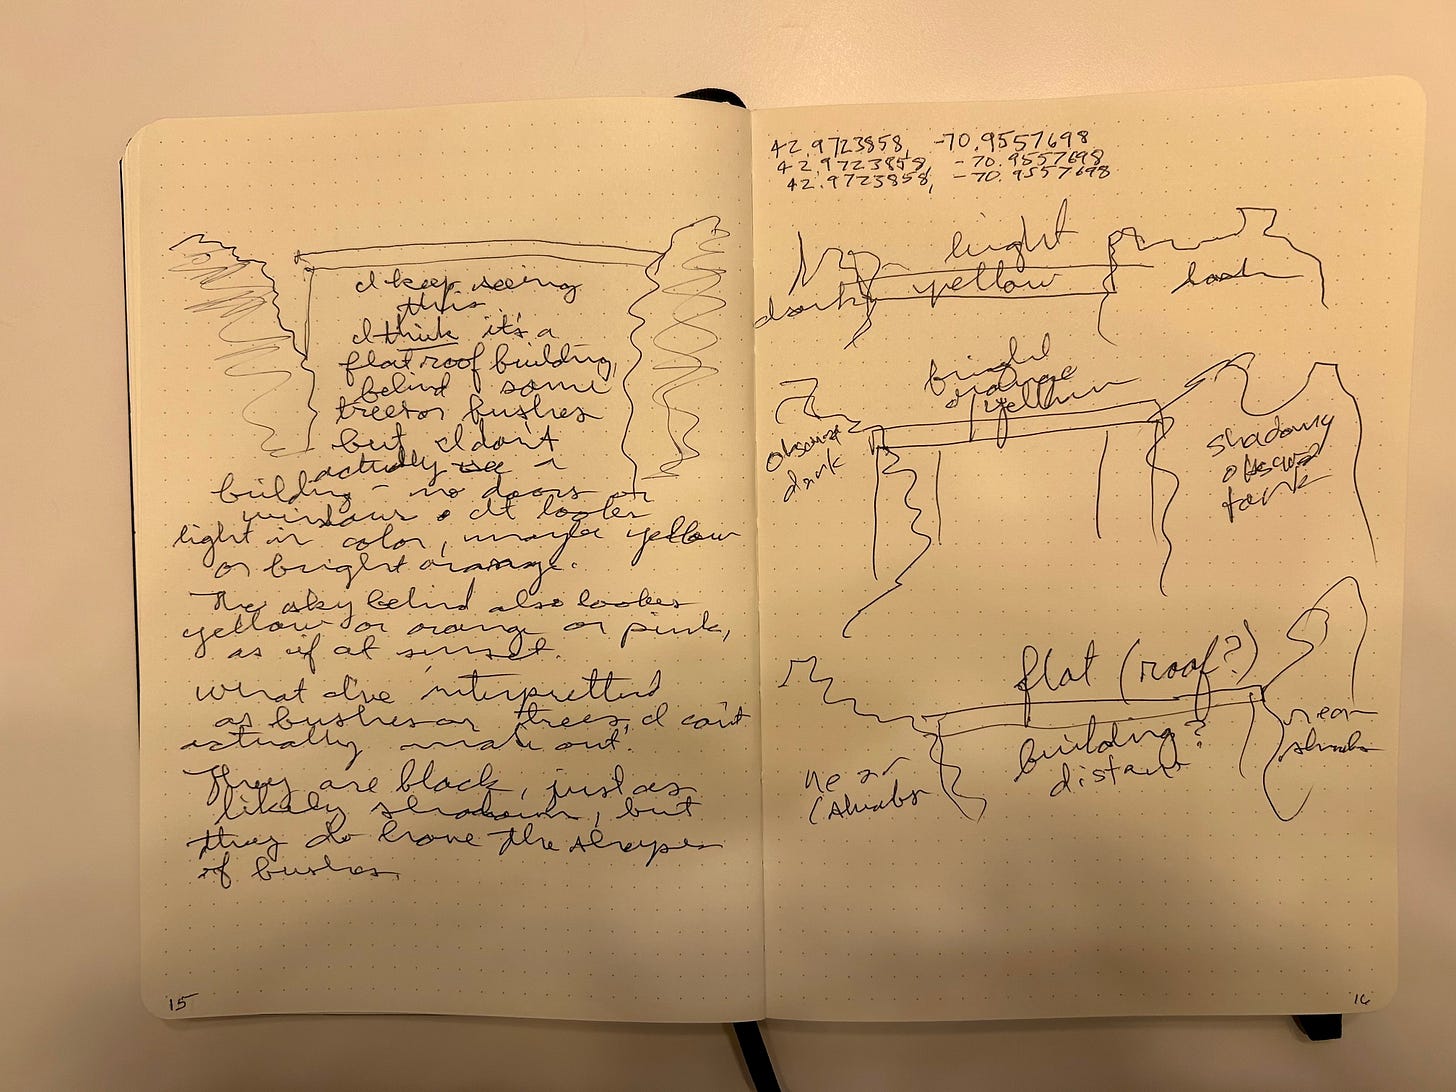 I keep seeing
this
I think it's a
flat roof building,
behind some
trees or bushes
but I don't
actually see a
building - no doors or
windows. It looks
light in color, maybe yellow
or bright orange.
The sky behind also looks
yellow or orange or pink,
as if at sunset.
What I've interpretted
as bushes or trees, I can't
actually make out.
They are black, just as
likely shadows, but
they do have the shapes
of bushes.
15
42.9723858, -70.9557698
42.9723858, -70.9557698
42.9723858, -70.9557698
light
dark yellow
bright
orange
yellow
obscure
dark
shadowy
obscured
flat (roof?)
building?
distant
near
shrubs
near
shrubs
16